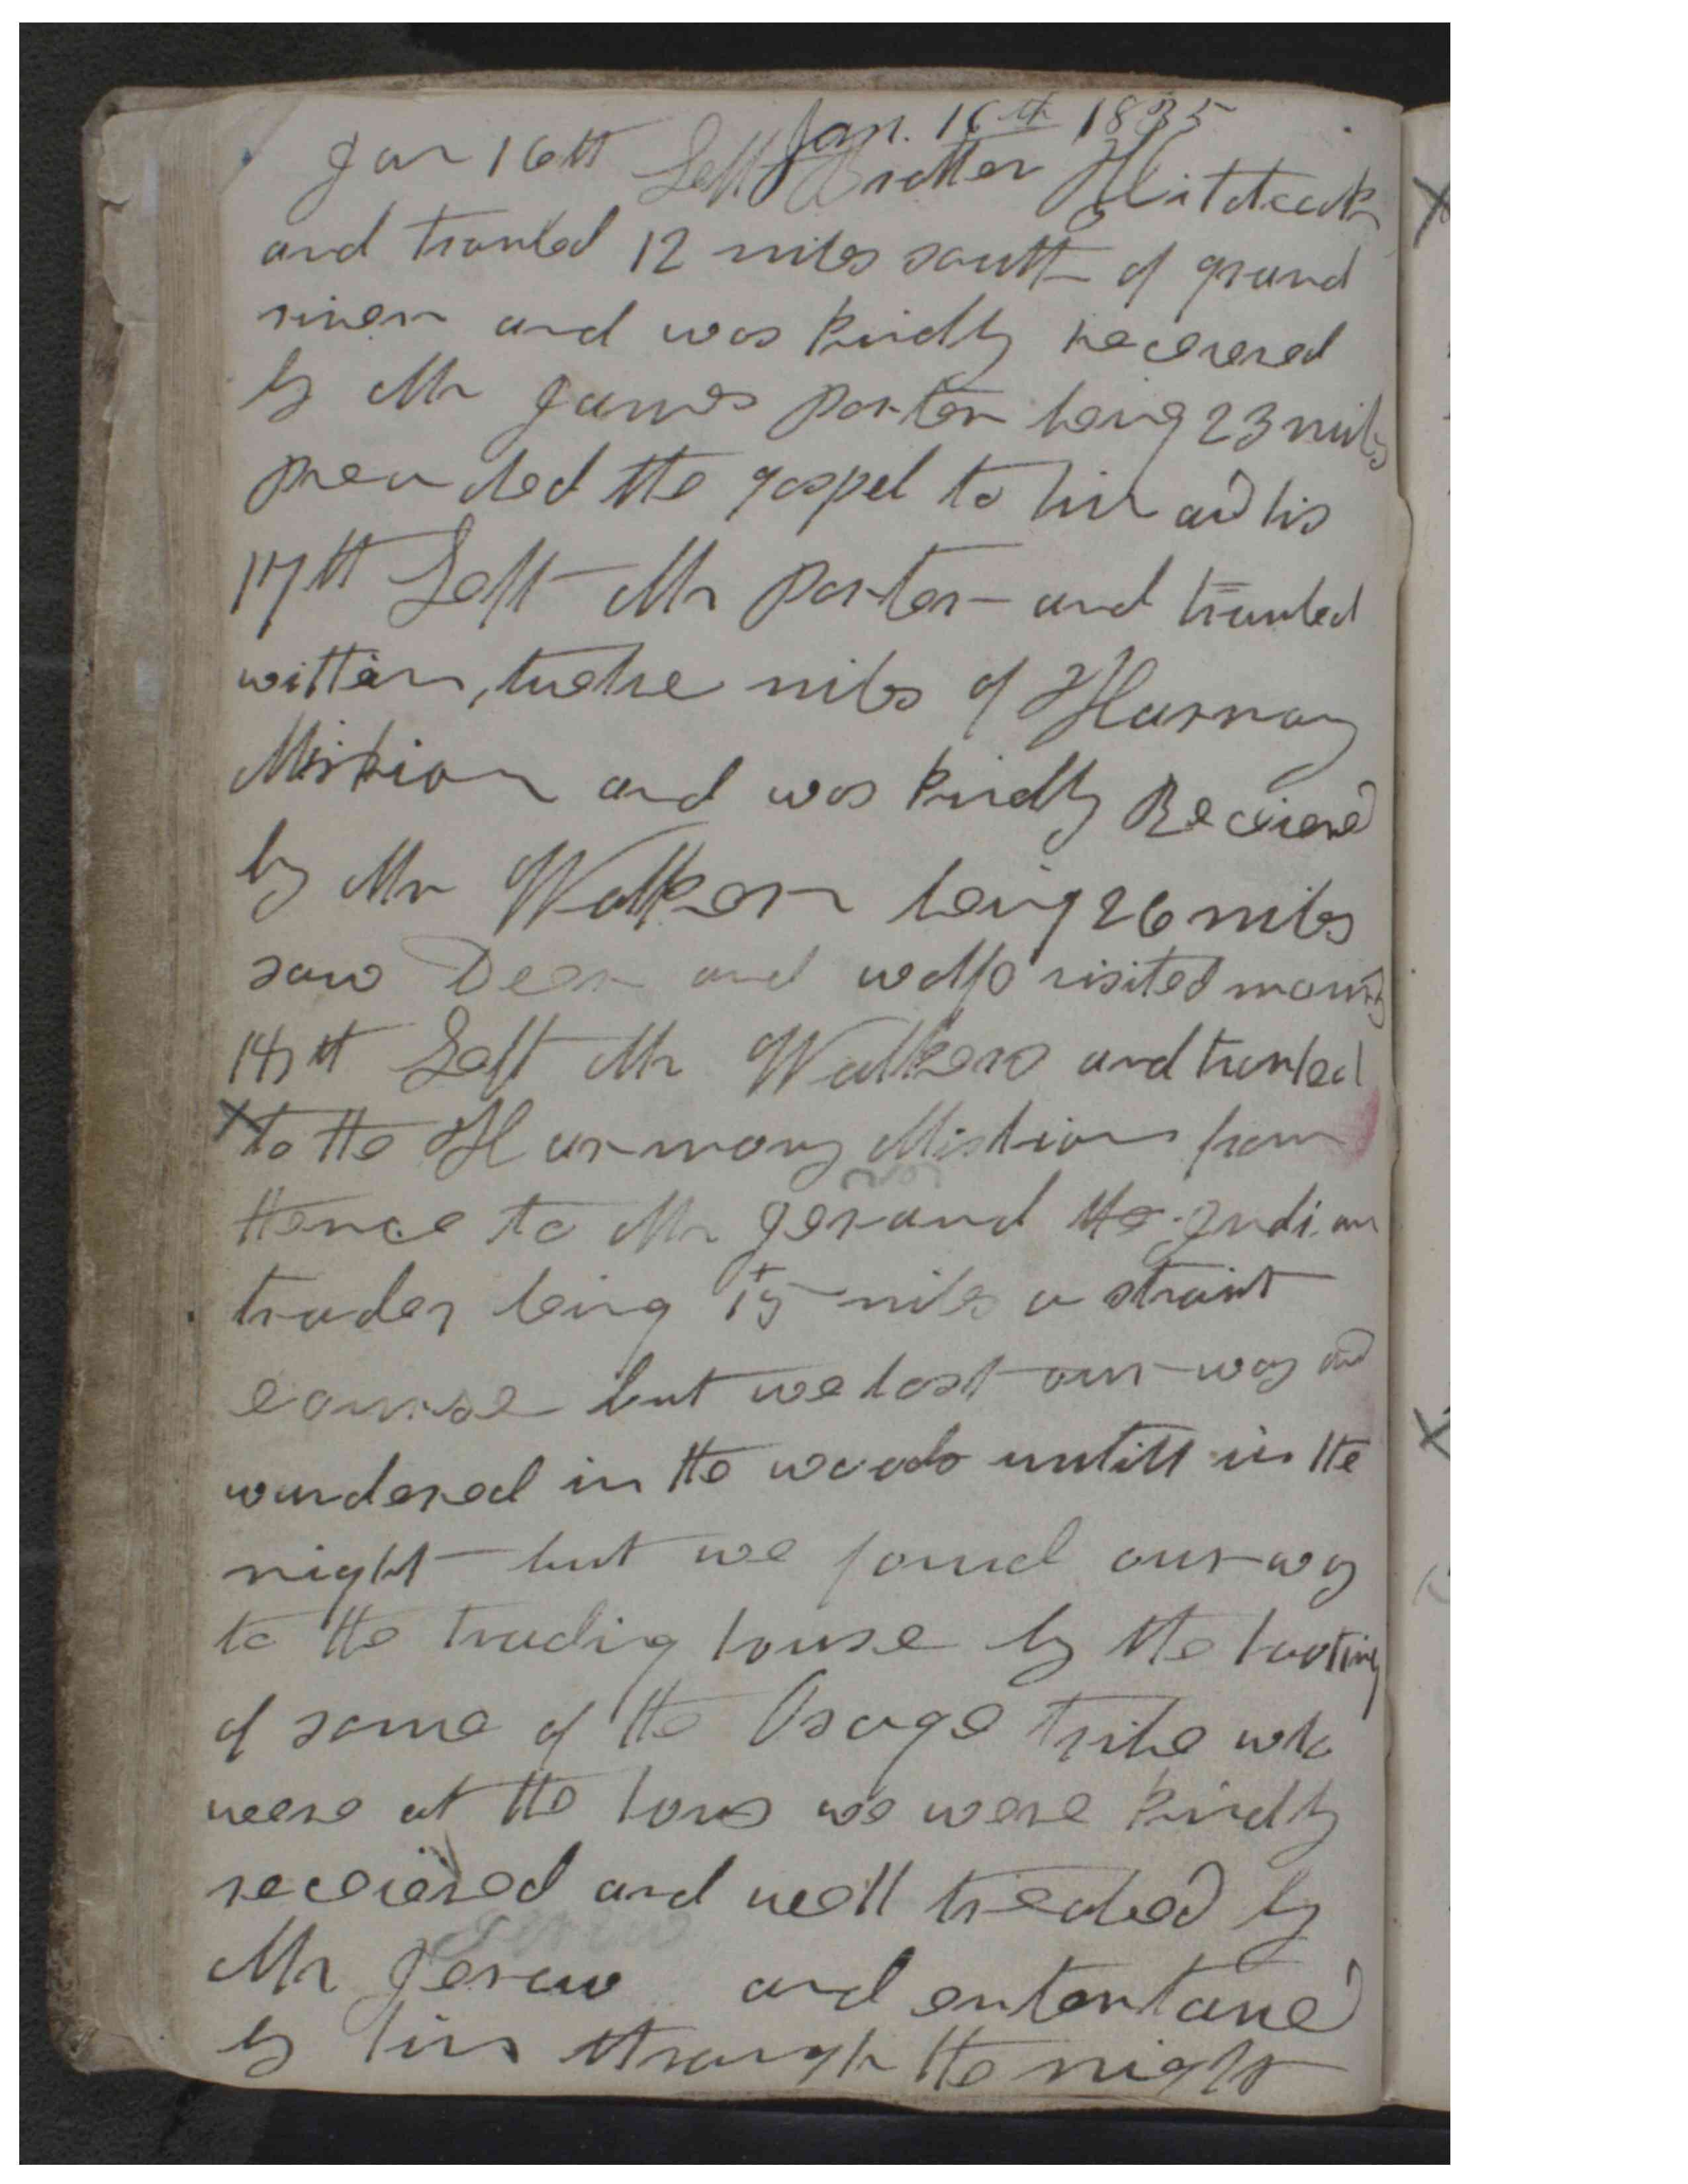 Jan. 16th 1835
Jan 16th Left Brother Hitchcock
and traveled 12 miles south of grand
river and was kindly received
by Mr James Porter being 23 miles
preached the gospel to him and his
17th Left Mr Porter and traveled
within twelve miles of Harmony
Mishion and was kindly Received
by Mr Walker being 26 miles
saw Deer and wolfs visited many
18th Left Mr Walkers and traveled
to the Harmony Mishion from
thence to Mr gerand the indian
trader being 15 miles a straint
course but we lost our way and
wandered in the woods untill in the
night but we found our way
to the trading house by the hooting
of some of the Osage tribe who
were at the hous we were kindly
received and well treated by
Mr Jeraw and entertaned
by him through the night